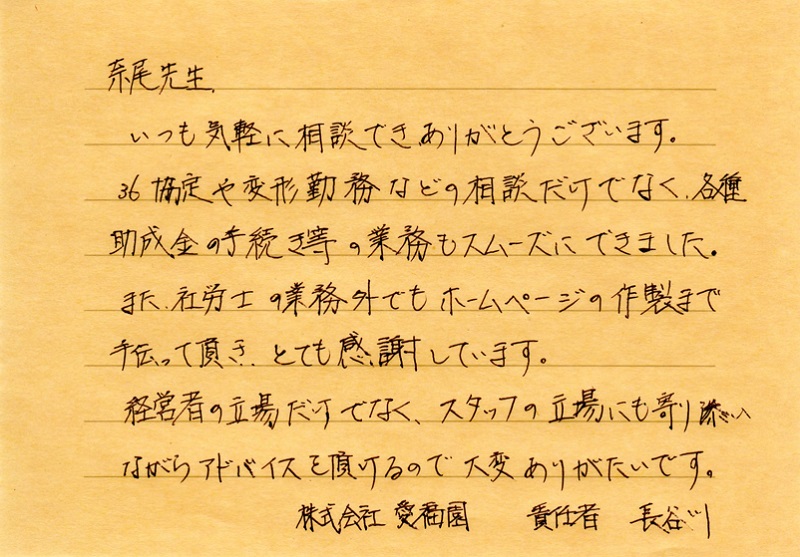 奈尾先生、
いつも気軽に相談でき、ありがとうございます。
36協定や変形勤務などの相談だけでなく、各種
助成金の手続き等の業務もスムーズにできました。
また、社労士の業務外でもホームページの作製まで
手伝って頂き、とても感謝しています。
経営者の立場だけでなく、スタッフの立場にも寄り添い
ながらアドバイスを頂けるので大変ありがたいです。
株式会社 愛福園 責任者 長谷川